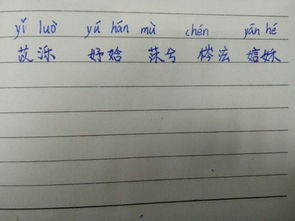 yǐ luò yú hán mù chén yān hé
苡泺 妤 兮 梣泫